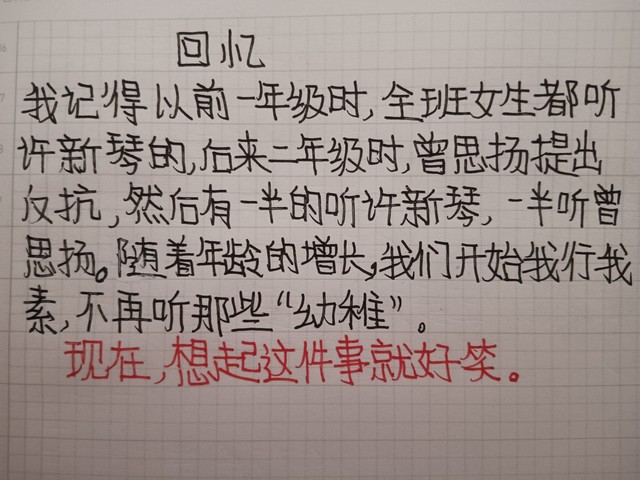 回忆
我记得以前一年级时,全班女生都听
许新琴的,后来二年级时,曾思扬提出
反抗,然后有一半的听许新琴,一半听曾
思扬。随着年龄的增长,我们开始我行我
素,不再听那些“幼稚”。
现在,想起这件事就好笑。